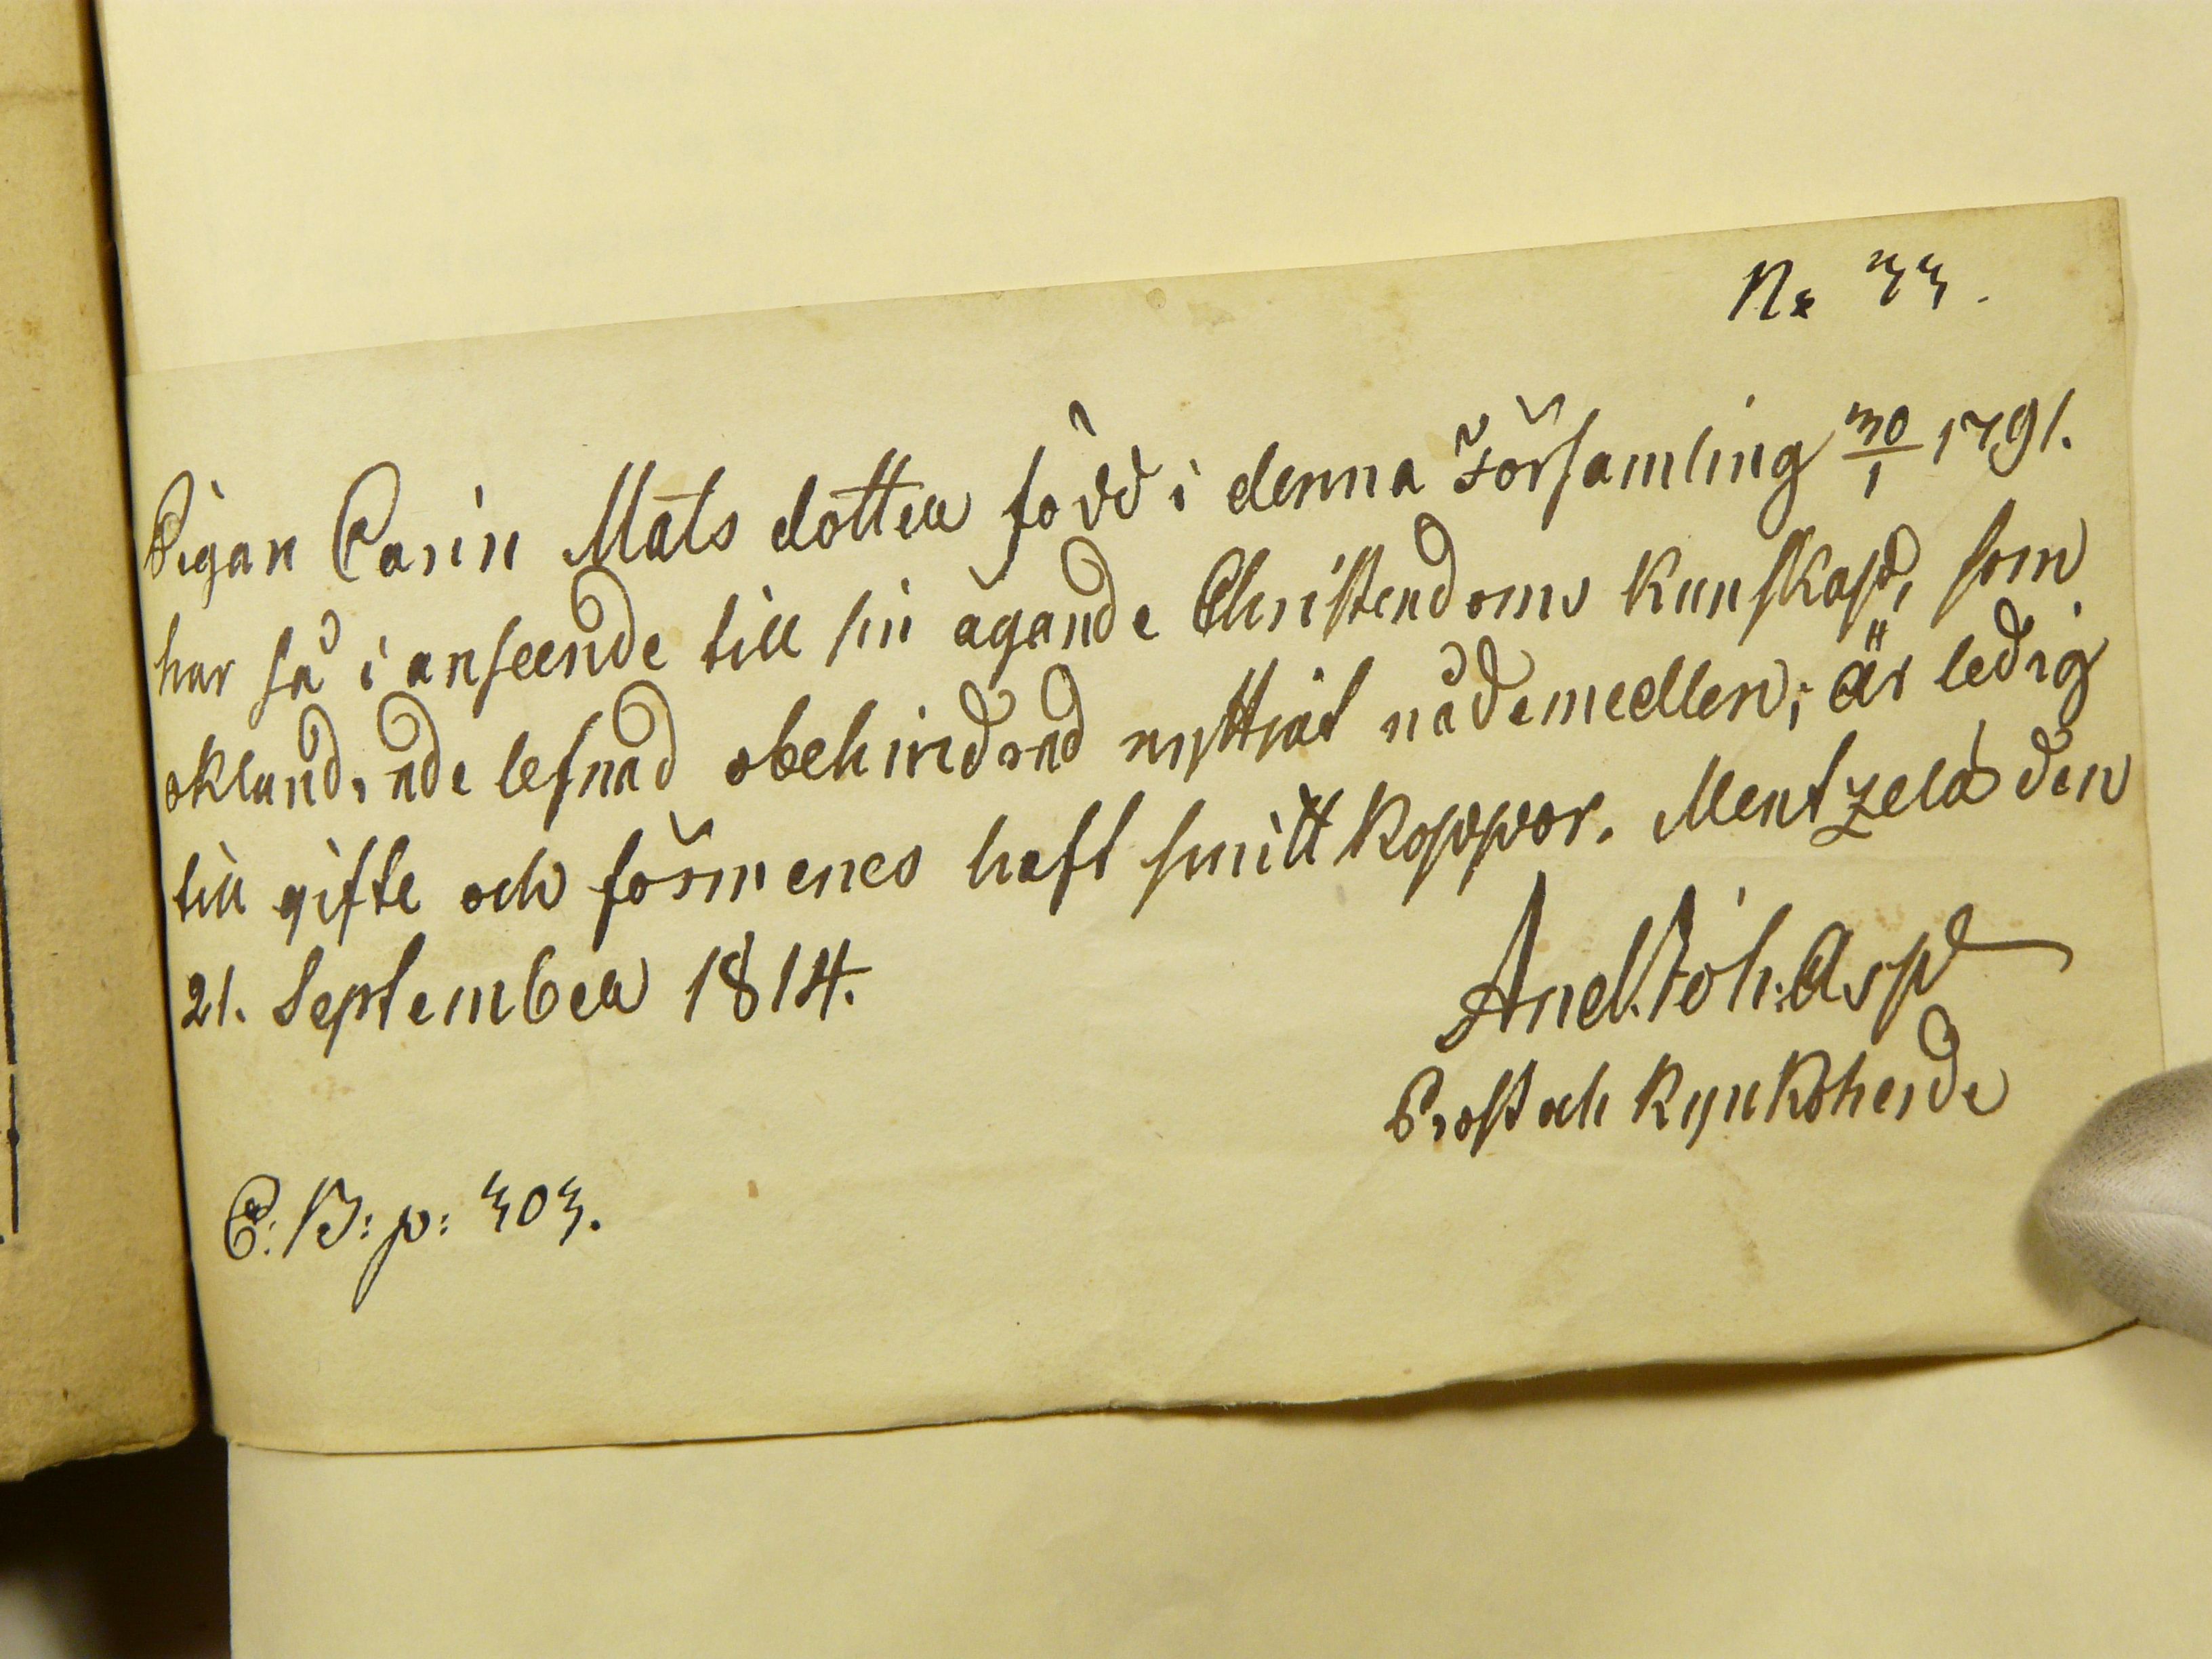 No 33.
Pigan Carin Mats dotter född i denna Församling 30/1 1791.
har så i anseende till sin ägande Christendoms Kunskap, som
oklandrade lefnad obehindrad nyttjat nådemedlen; är ledig
till gifte och förmenes haft smittkoppor. Mentzelås den
21. September 1814.
And. Joh: Asp
Prost och Kyrkoherde
C: B: p: 303.